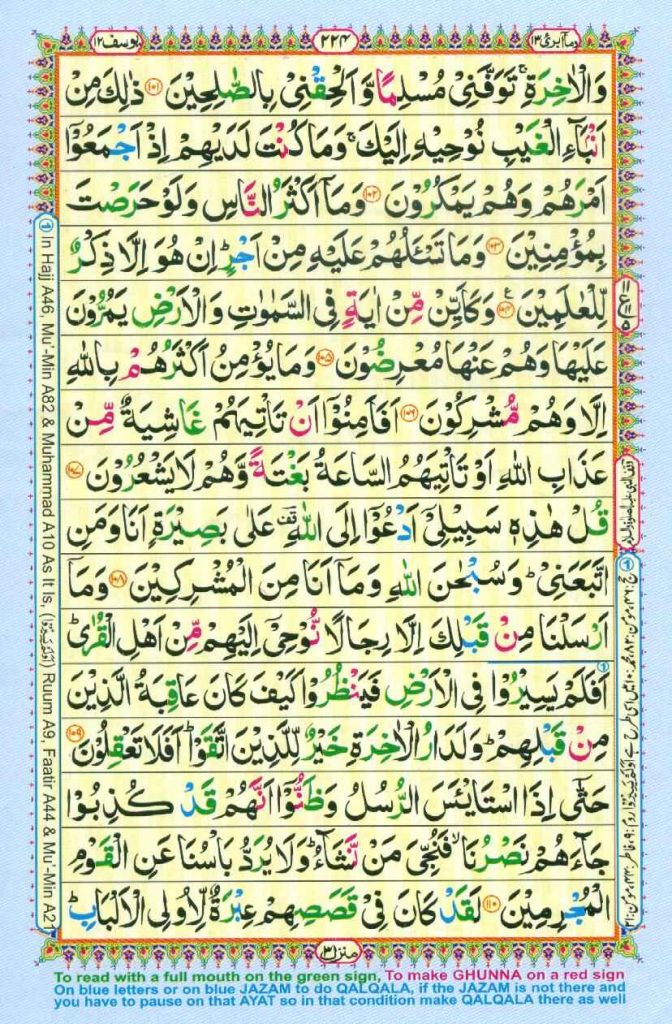 وما ابرئ ١٣
٢٢٤
يوسف ١٢
وَالْاٰخِرَةِ ۚ تَوَفَّنِیْ مُسْلِمًا وَّاَلْحِقْنِیْ بِالصّٰلِحِیْنَ ﴿۱۰۱﴾ ذٰلِكَ مِنْ
اَنْۢبَآءِ الْغَیْبِ نُوْحِیْهِ اِلَیْكَ ۚ وَمَا كُنْتَ لَدَیْهِمْ اِذْ اَجْمَعُوْۤا
اَمْرَهُمْ وَهُمْ یَمْكُرُوْنَ ﴿۱۰۲﴾ وَمَاۤ اَكْثَرُ النَّاسِ وَلَوْ حَرَصْتَ
بِمُؤْمِنِیْنَ ﴿۱۰۳﴾ وَمَا تَسْـَٔلُهُمْ عَلَیْهِ مِنْ اَجْرٍ ؕ اِنْ هُوَ اِلَّا ذِكْرٌ
لِّلْعٰلَمِیْنَ ﴿۱۰۴﴾ ع وَكَاَیِّنْ مِّنْ اٰیَةٍ فِی السَّمٰوٰتِ وَالْاَرْضِ یَمُرُّوْنَ
عَلَیْهَا وَهُمْ عَنْهَا مُعْرِضُوْنَ ﴿۱۰۵﴾ وَمَا یُؤْمِنُ اَكْثَرُهُمْ بِاللّٰهِ
اِلَّا وَهُمْ مُّشْرِكُوْنَ ﴿۱۰۶﴾ اَفَاَمِنُوْۤا اَنْ تَاْتِیَهُمْ غَاشِیَةٌ مِّنْ
عَذَابِ اللّٰهِ اَوْ تَاْتِیَهُمُ السَّاعَةُ بَغْتَةً وَّهُمْ لَا یَشْعُرُوْنَ ﴿۱۰۷﴾
قُلْ هٰذِهٖ سَبِیْلِیْۤ اَدْعُوْۤا اِلَی اللّٰهِ ؔ عَلٰی بَصِیْرَةٍ اَنَا وَمَنِ
اتَّبَعَنِیْ ؕ وَسُبْحٰنَ اللّٰهِ وَمَاۤ اَنَا مِنَ الْمُشْرِكِیْنَ ﴿۱۰۸﴾ وَمَاۤ
اَرْسَلْنَا مِنْ قَبْلِكَ اِلَّا رِجَالًا نُّوْحِیْۤ اِلَیْهِمْ مِّنْ اَهْلِ الْقُرٰی ؕ
اَفَلَمْ یَسِیْرُوْا فِی الْاَرْضِ فَیَنْظُرُوْا كَیْفَ كَانَ عَاقِبَةُ الَّذِیْنَ
مِنْ قَبْلِهِمْ ؕ وَلَدَارُ الْاٰخِرَةِ خَیْرٌ لِّلَّذِیْنَ اتَّقَوْا ؕ اَفَلَا تَعْقِلُوْنَ ﴿۱۰۹﴾
حَتّٰۤی اِذَا اسْتَایْـَٔسَ الرُّسُلُ وَظَنُّوْۤا اَنَّهُمْ قَدْ كُذِبُوْا
جَآءَهُمْ نَصْرُنَا ۙ فَنُجِّیَ مَنْ نَّشَآءُ ؕ وَلَا یُرَدُّ بَاْسُنَا عَنِ الْقَوْمِ
الْمُجْرِمِیْنَ ﴿۱۱۰﴾ لَقَدْ كَانَ فِیْ قَصَصِهِمْ عِبْرَةٌ لِّاُولِی الْاَلْبَابِ ؕ
منزل ٣
① In Hajj A46, Mu'-Min A82 & Muhammad A10 As It Is, (اَوَلَمْ یَسِیْرُوْا) Ruum A9, Faatir A44 & Mu'-Min A21
To read with a full mouth on the green sign, To make GHUNNA on a red sign
On blue letters or on blue JAZAM to do QALQALA, if the JAZAM is not there and
you have to pause on that AYAT so in that condition make QALQALA there as well